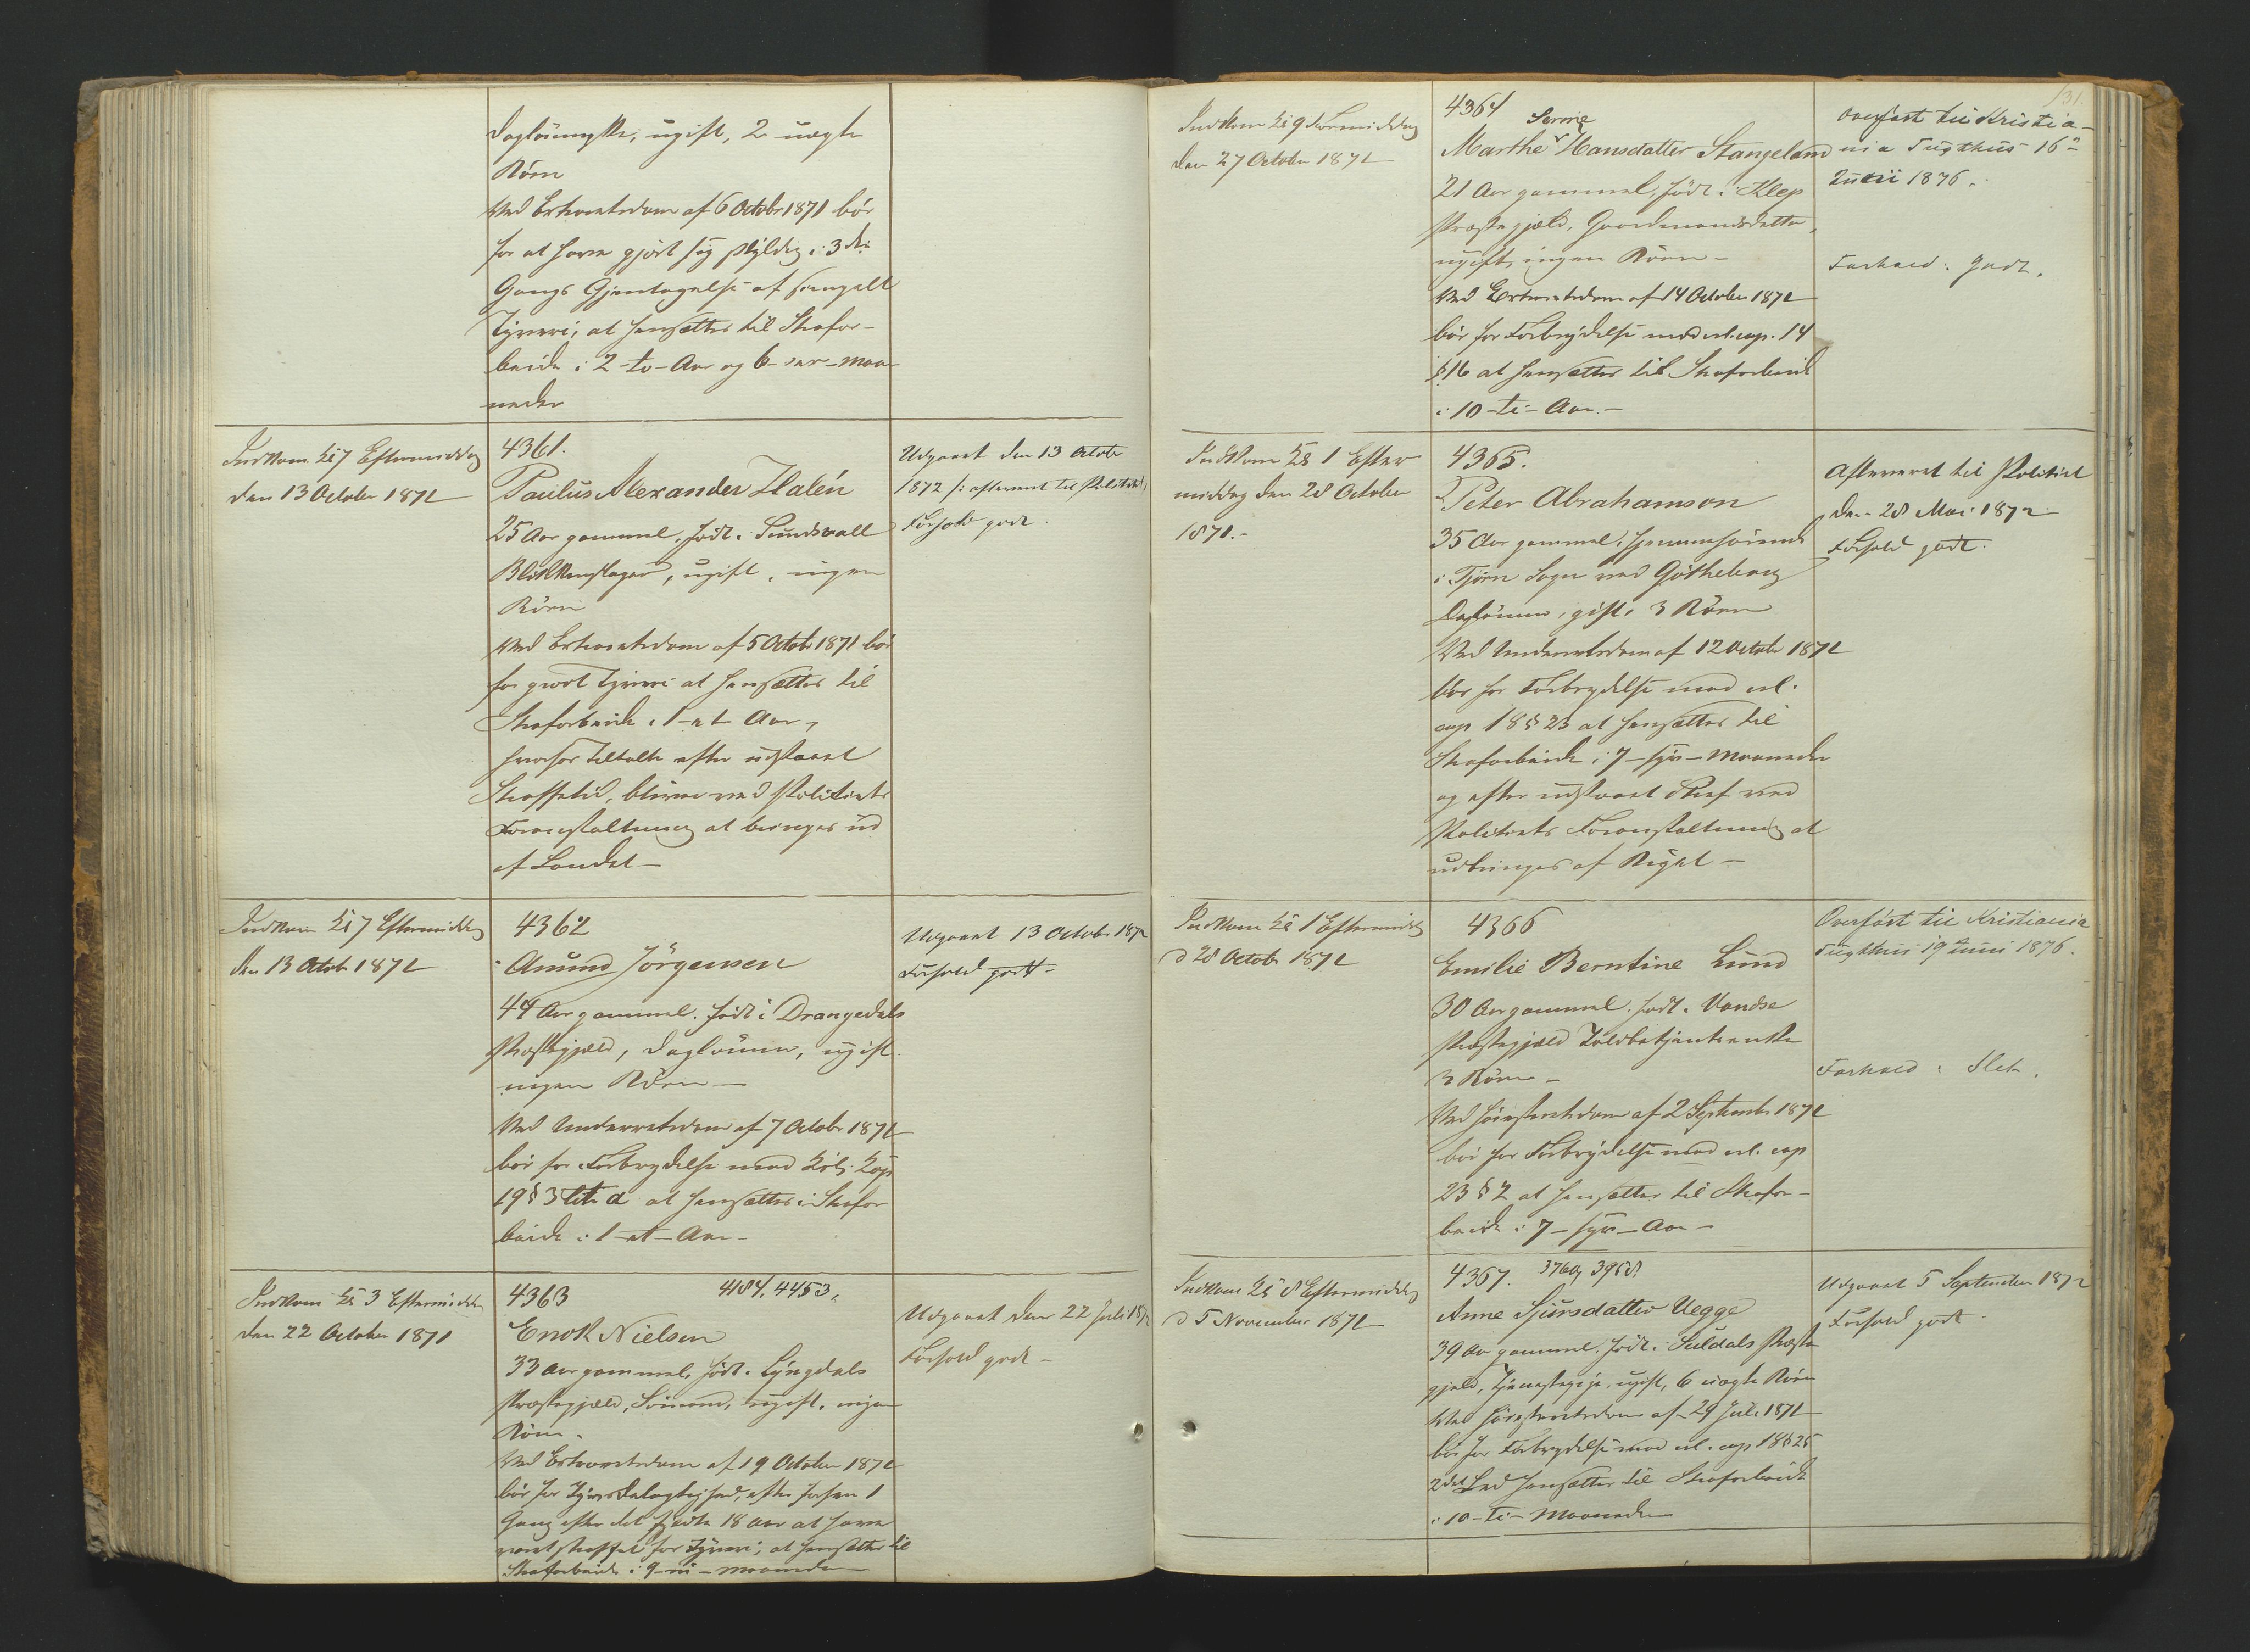 dagløinnerske, ugift, 2 uægte
Börn
Ved Extraretsdom af 6 Octobr 1871 bør
for at have gjort sig skyldig i 3die
Gangs Gjentagelse af simpelt
Tyveri, at hensættes til Strafar-
beide i 2 - to - Aar og 6 - sex - Maa-
neder
Indkom Kl 7 Eftermiddag
den 13 October 1871
4361.
Paulus Alexander Halén
25 Aar gammel, født i Sundsvall
Blikkenslager, ugift, ingen
Børn
Ved Extraretsdom af 5 Octobr 1871 bør
for grovt Tyveri at hensættes til
Strafarbeide i 1 - et Aar,
hvorhos Tiltalte efter udstaaet
Straffetid, bliver ved Politiets
Foranstaltning at bringes ud
af Landet —
Udgaaet den 13 Octobr
1872 /: afleveret til Politiet
Forhold godt.
Indkom Kl 7 Eftermiddag
den 13 Octobr 1871
4362
Amund Jörgensen
44 Aar gammel. født i Drangedals
Præstegjæld, Dagløinner, ugift
ingen Börn —
Ved Underretsdom af 7 Octobr 1871
bør for Forbrydelse mod Krl. Kap
19 § 3 litr a at hensættes i Strafar
beide i 1 - et - Aar -
Udgaaet 13 Octobr 1872
Forhold godt -
Indkom Kl 3 Eftermiddag
den 22 October 1871
4363 4184. 4453.
Enok Nielsen
33 Aar gammel, født i Lyngdals
Præstegjæld, Sömand, ugift, ingen
Börn.
Ved Extraretsdom af 19 October 1871
bør for Tyvsdelagtighed, efter forhen 1
Gang efter det fyldte 18 Aar at have
været straffet for Tyveri, at hensættes til
Strafarbeide i 9 - ni - Maaneder
Udgaaet den 22 Juli 1872
Forhold godt -
131.
Indkom Kl 9 Formiddag
den 27 October 1871
4364
Serine
Marthe Hansdatter Stangeland
21 Aar gammel, født i Klep
Præstegjæld, Gaardmandsdatter,
ugift, ingen Börn -
Ved Extraretsdom af 14 October 1871
bør for Forbrydelse mod crl. cap. 14
§ 16 at hensættes til Strafarbeide
i 10 - ti - Aar. -
Overført til Kristia-
nia Tugthus 16de
Juni 1876.
Forhold: Godt.
Indkom Kl 1 Efter
middag den 28 October
1871. -
4365.
Peter Abrahamson
35 Aar gammel, hjemmehørende
i Tjörn Sogn ved Götheborg
Dagløinner, gift, 3 Börn
Ved Underretsdom af 12 Octobr 1871
bør for Forbrydelse mod crl.
cap 18 § 23 at hensættes til
Strafarbeide i 7 - syv - Maaneder
og efter udstaaet Straf ved
Politiets Foranstaltning at
udbringes af Riget —
Afleveret til Politiet
den 28 Mai 1872
Forhold godt.
Indkom Kl 1 Eftermiddag
d 28 Octobr 1871
4366
Emilie Berntine Lund
30 Aar gammel. født i Vandse
Præstegjæld Toldbetjentenke
3 Börn -
Ved Høiesteretsdom af 2 Septembr 1871
bør for Forbrydelse mod crl. cap
23 § 2 at hensættes til Strafar-
beide i 7 - syv - Aar -
Overført til Kristiania
Tugthus 19 Juni 1876.
Forhold: Slet.
Indkom Kl 8 Eftermiddag
d 5 November 1871
4367. 3760, 3968.
Anne Sjursdatter Vegge
39 Aar gammel. født i Suldals Præste
gjæld, Tjenestepige, ugift, 6 uægte Börn
Ved Høiesteretsdom af 29 Juli 1871
bør for Forbrydelse mod crl. cap 18 § 25
2det Led hensættes til Strafarbeide
i 10 - ti - Maaneder
Udgaaet 5 September 1872
Forhold godt.